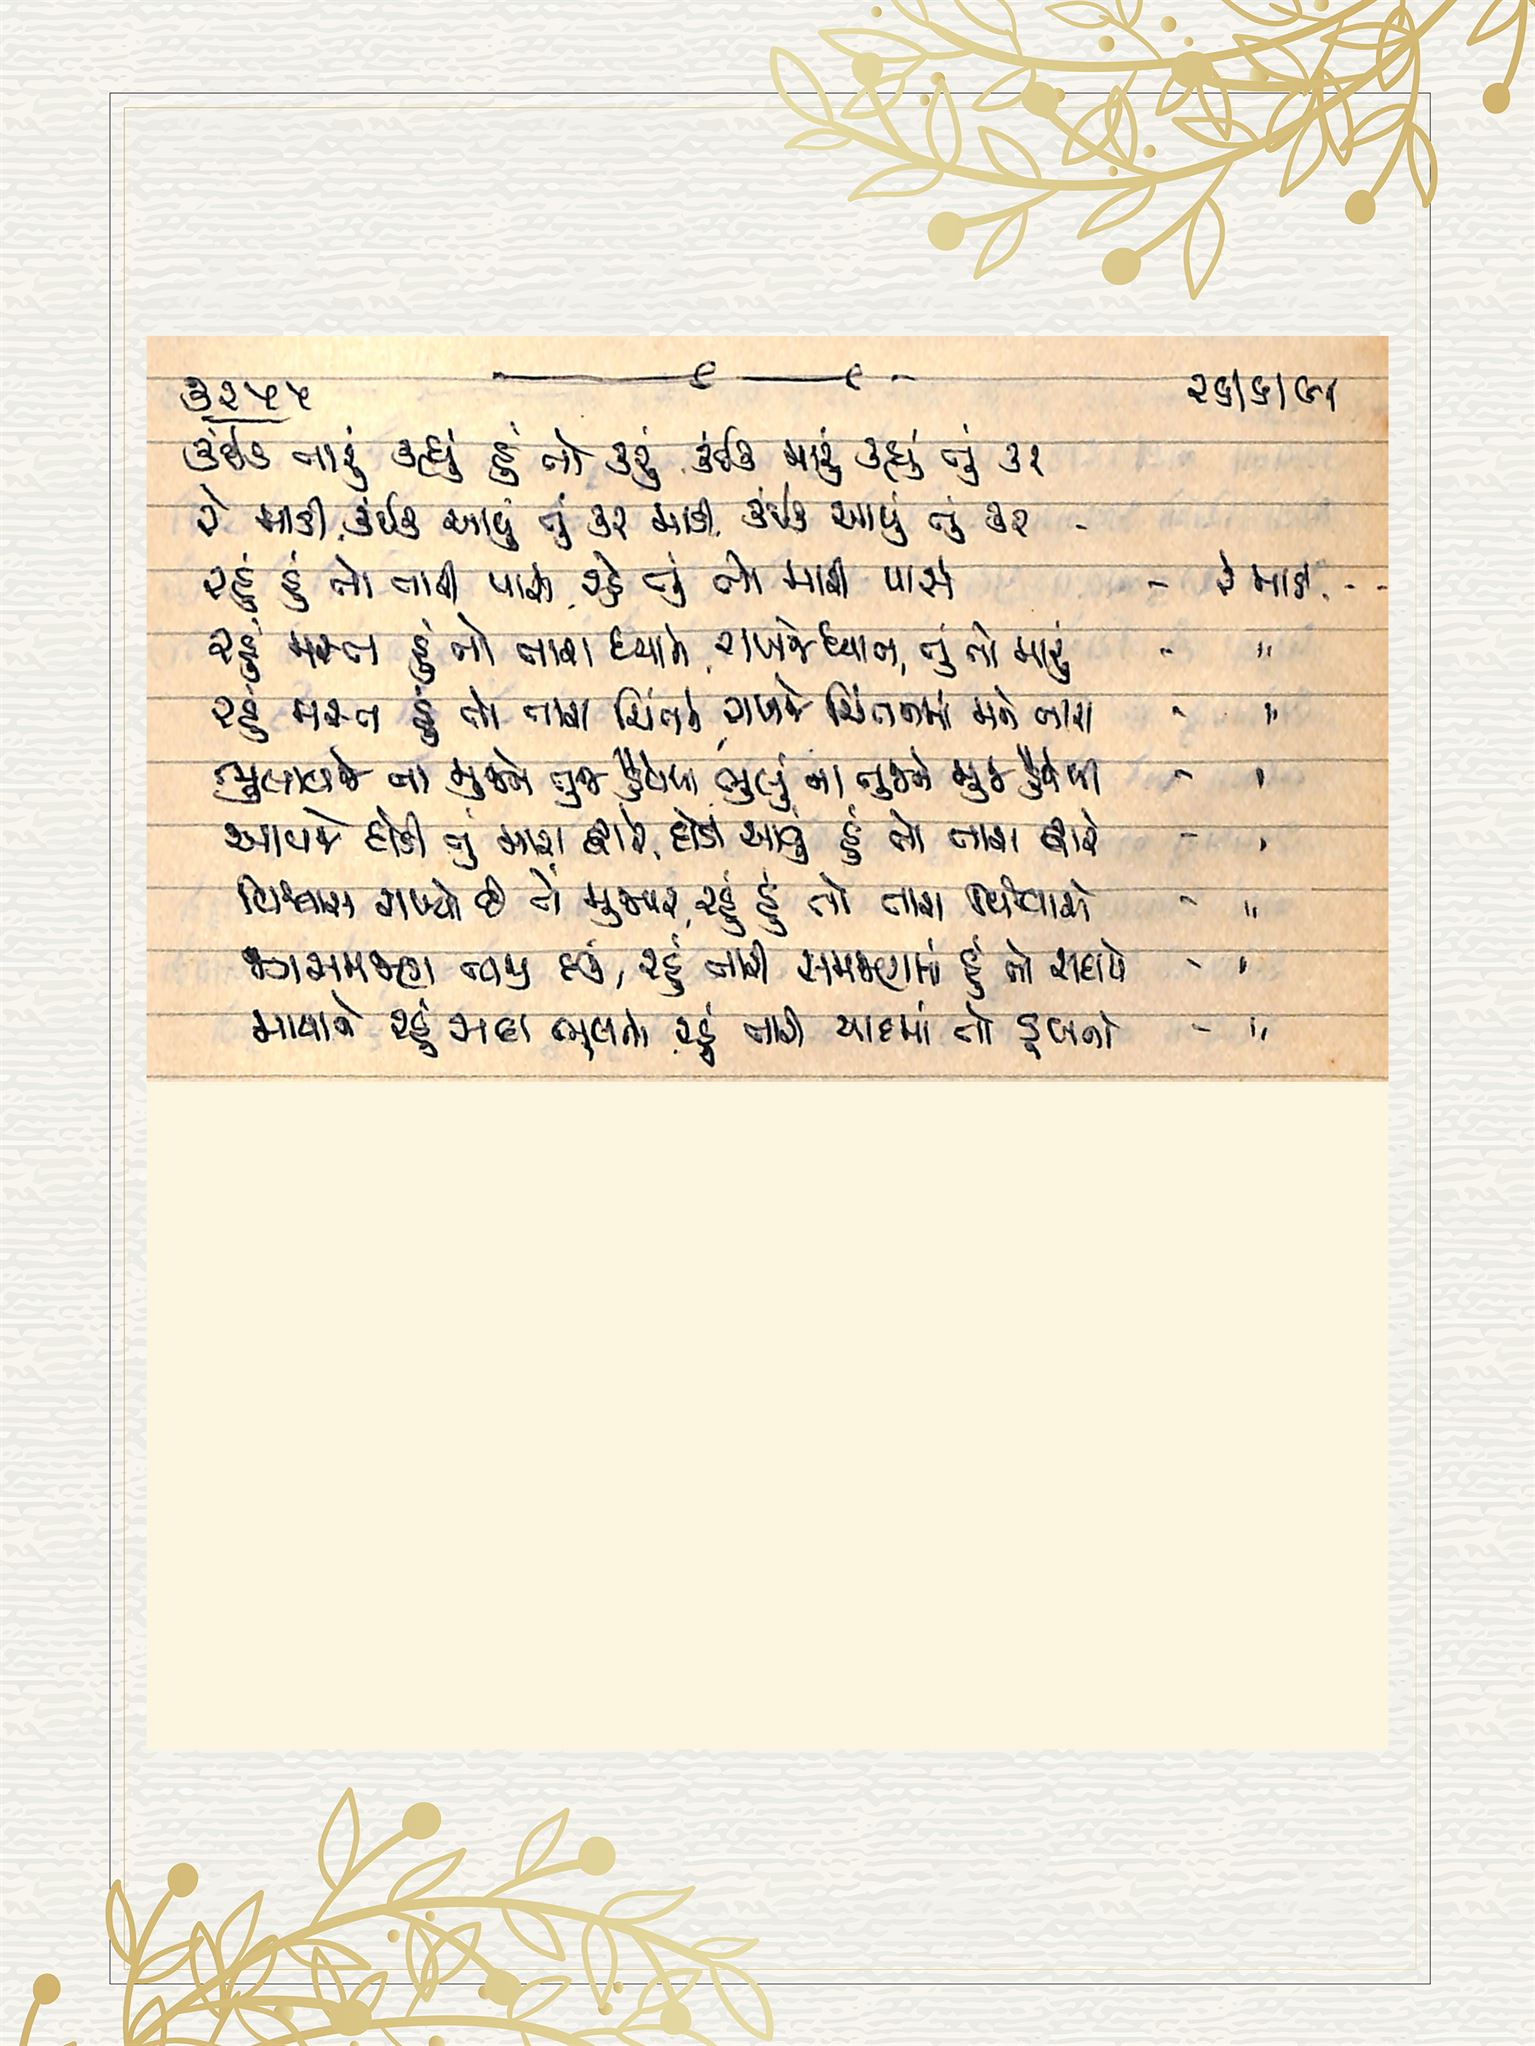 ૩૨૫૫ ૨૬/૬/૯૧
કંઈક તારું કહ્યું હું તો કરું, કંઈક મારું કહ્યું તું કર
રે માડી, કંઈક આવું તું કર માડી, કંઈક આવું તું કર -
રહું હું તો તારી પાસે, રહે તું તો મારી પાસે - રે માડી. - -
રહું મસ્ત હું તો તારા ધ્યાને, રાખજે ધ્યાન, તું તો મારું - "
રહું મસ્ત હું તો તારા ચિંતને, રાખજે ચિંતનમાં મને તારા - "
ભુલાવજે ના મુજને તુજ હૈયેથી, ભુલું ના તુજને મુજ હૈયેથી - "
આવજે દોડી તું મારા દ્વારે, દોડી આવું હું તો તારા દ્વારે - "
વિશ્વાસ રાખ્યો છે તેં મુજપર, રહું હું તો તારા વિશ્વાસે - "
જગસમજણ ત્યજી દઉં, રહું તારી સમજણમાં હું તો સદાયે - "
માયાને રહું સદા ભૂલતો, રહું તારી યાદમાં તો ડૂબતો - "